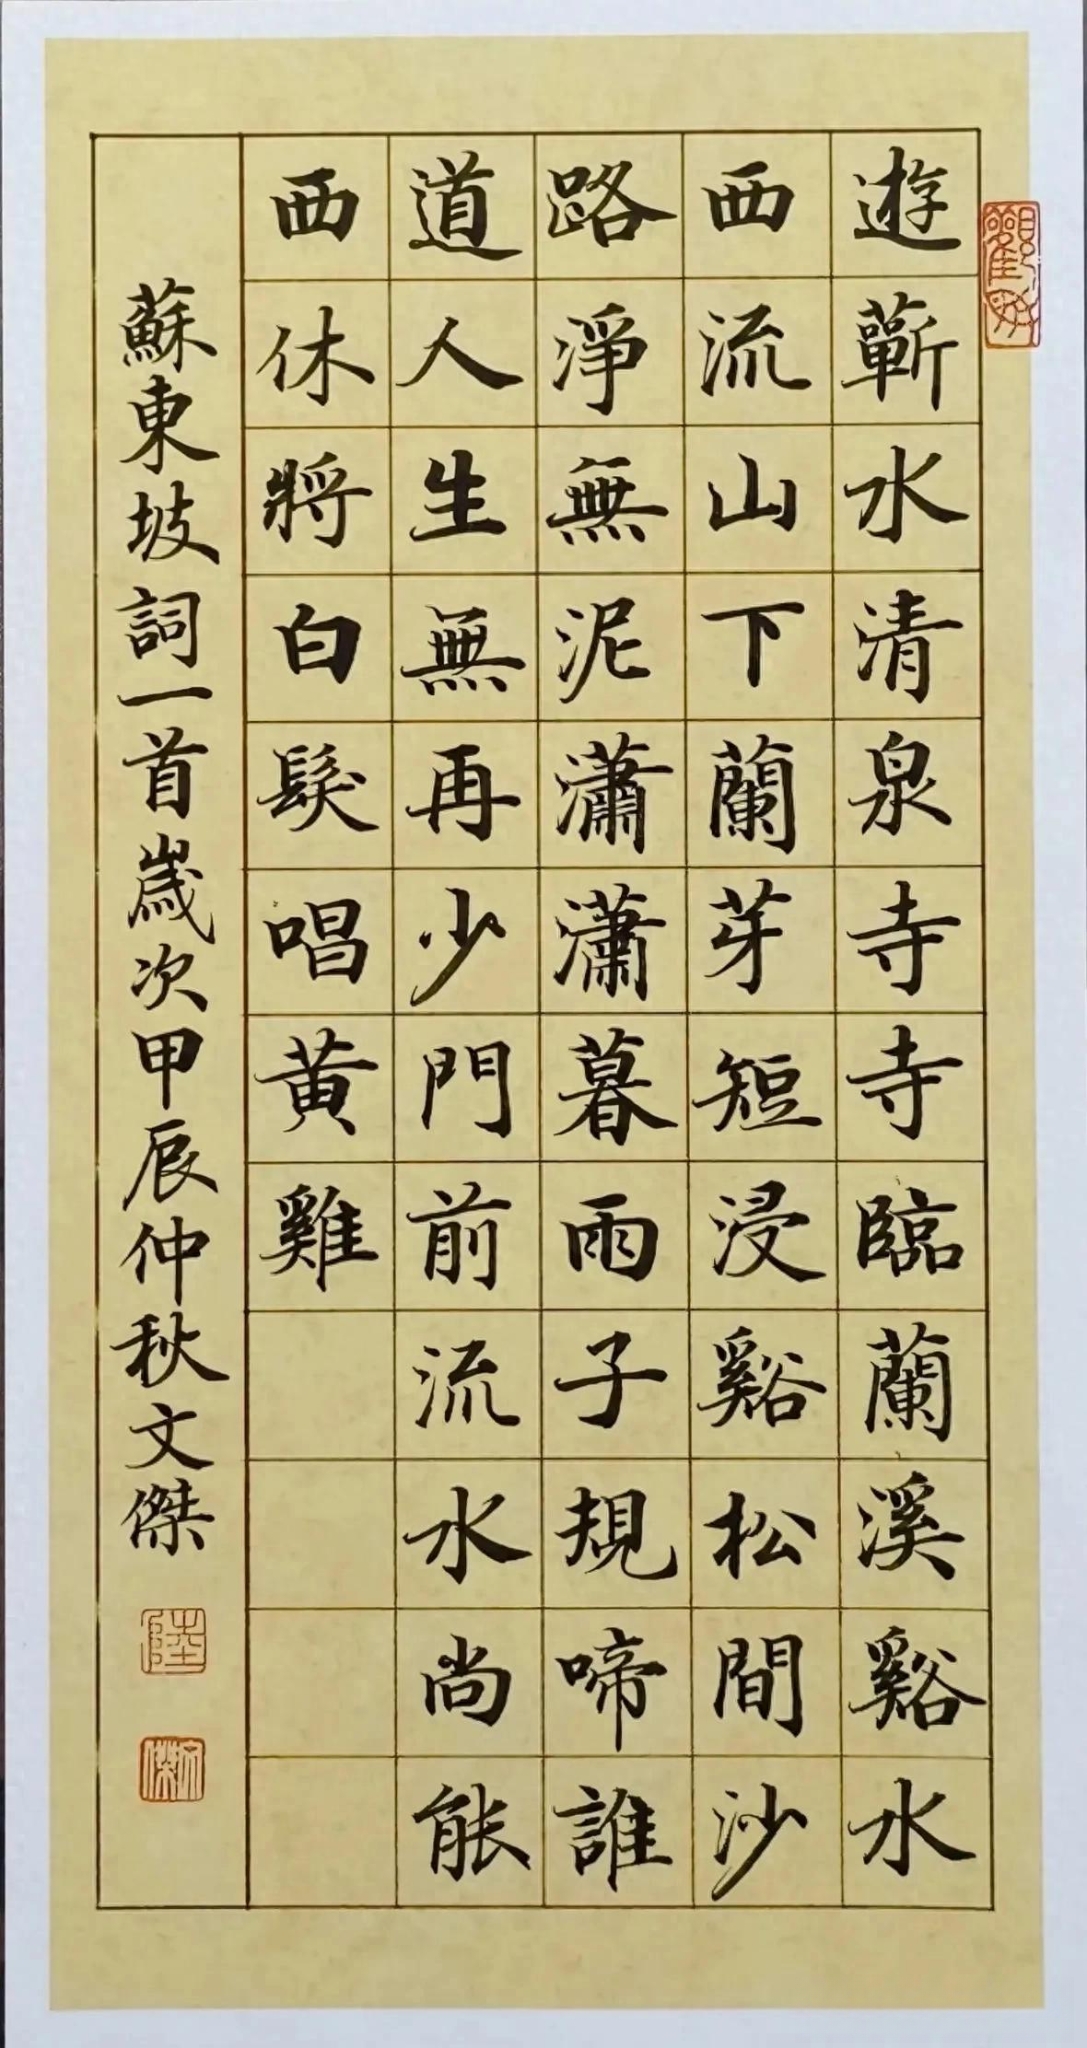 遊蘄水清泉寺寺臨蘭溪谿水
西流山下蘭芽短浸谿松間沙
路淨無泥瀟瀟暮雨子規啼誰
道人生無再少門前流水尚能
西休將白髮唱黄雞
蘇東坡詞一首歲次甲辰仲秋文傑
陸
文傑